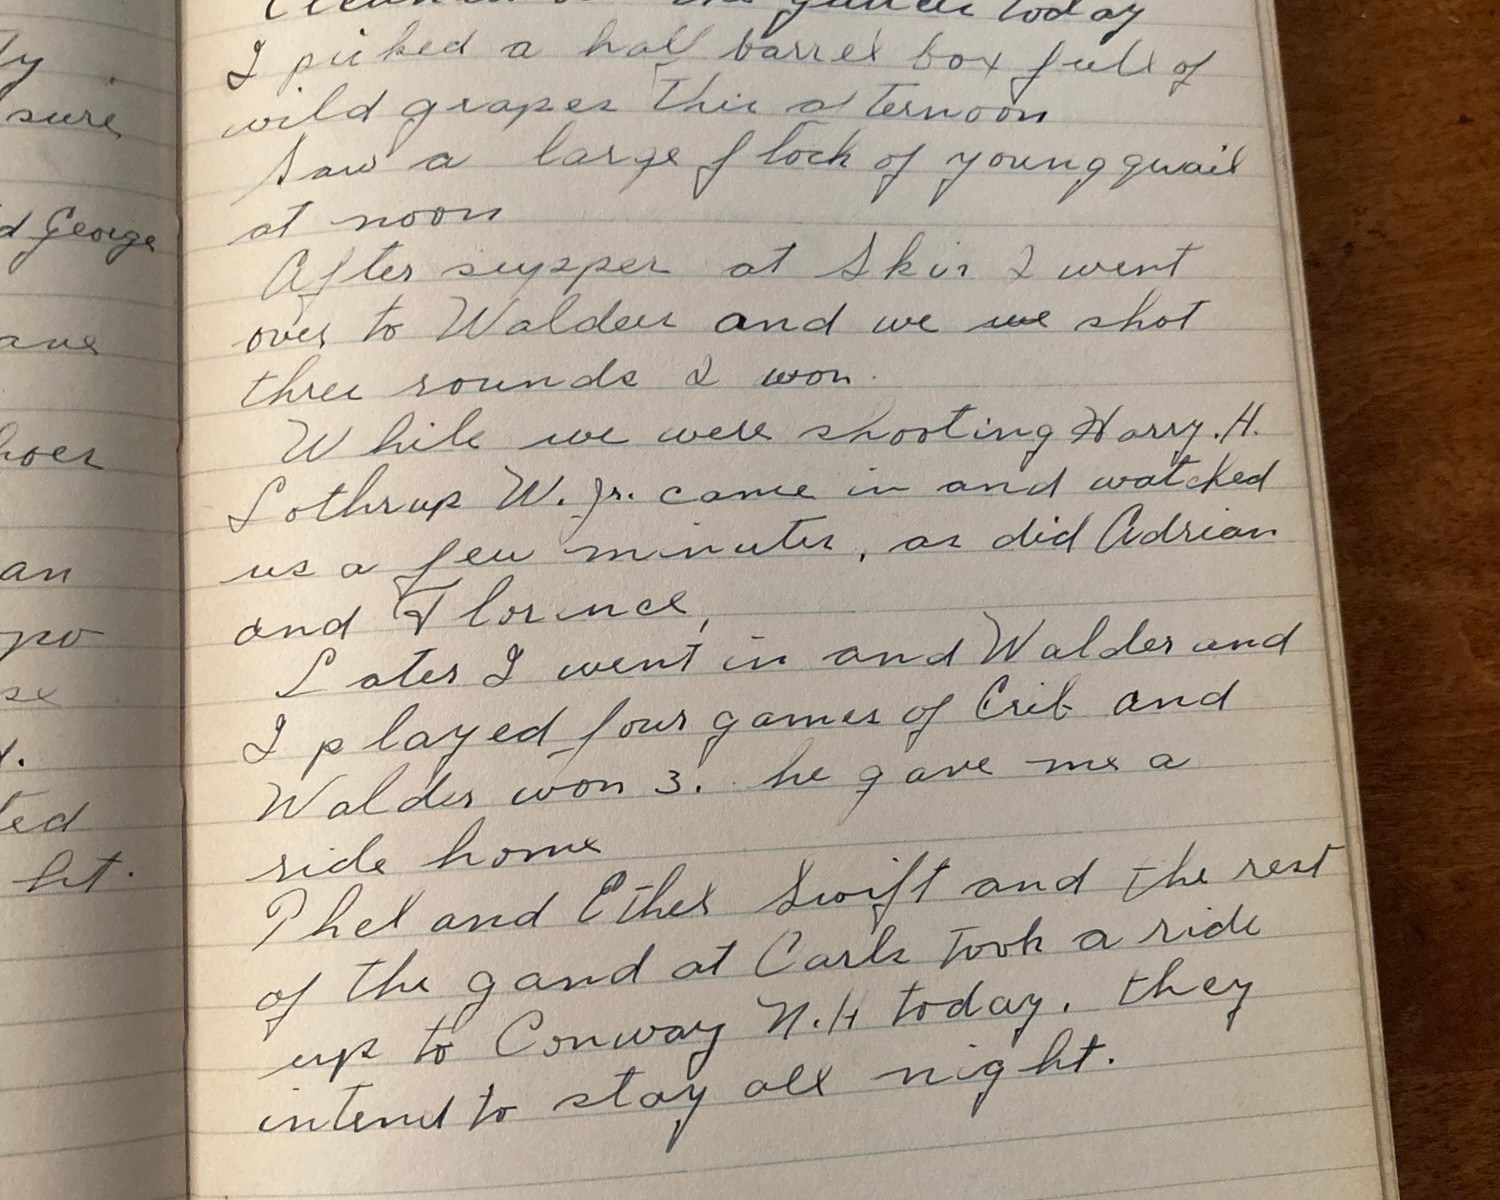 ly
sure
d George
ane
hoes
an
po
se
ted
ht.
the today
I picked a half barrel box full of
wild grapes this afternoon
Saw a large flock of young quail
at noon
After supper at Skis I went
over to Waldes and we we shot
three rounds I won.
While we were shooting Harry.H.
Lothrup W. Jr. came in and watched
us a few minutes, as did Adrian
and Florence,
Later I went in and Waldes and
I played four games of Crib and
Waldes won 3. he gave me a
ride home
Phel and Ethel Swift and the rest
of the gand at Carls took a ride
up to Conway N.H today. they
intend to stay all night.